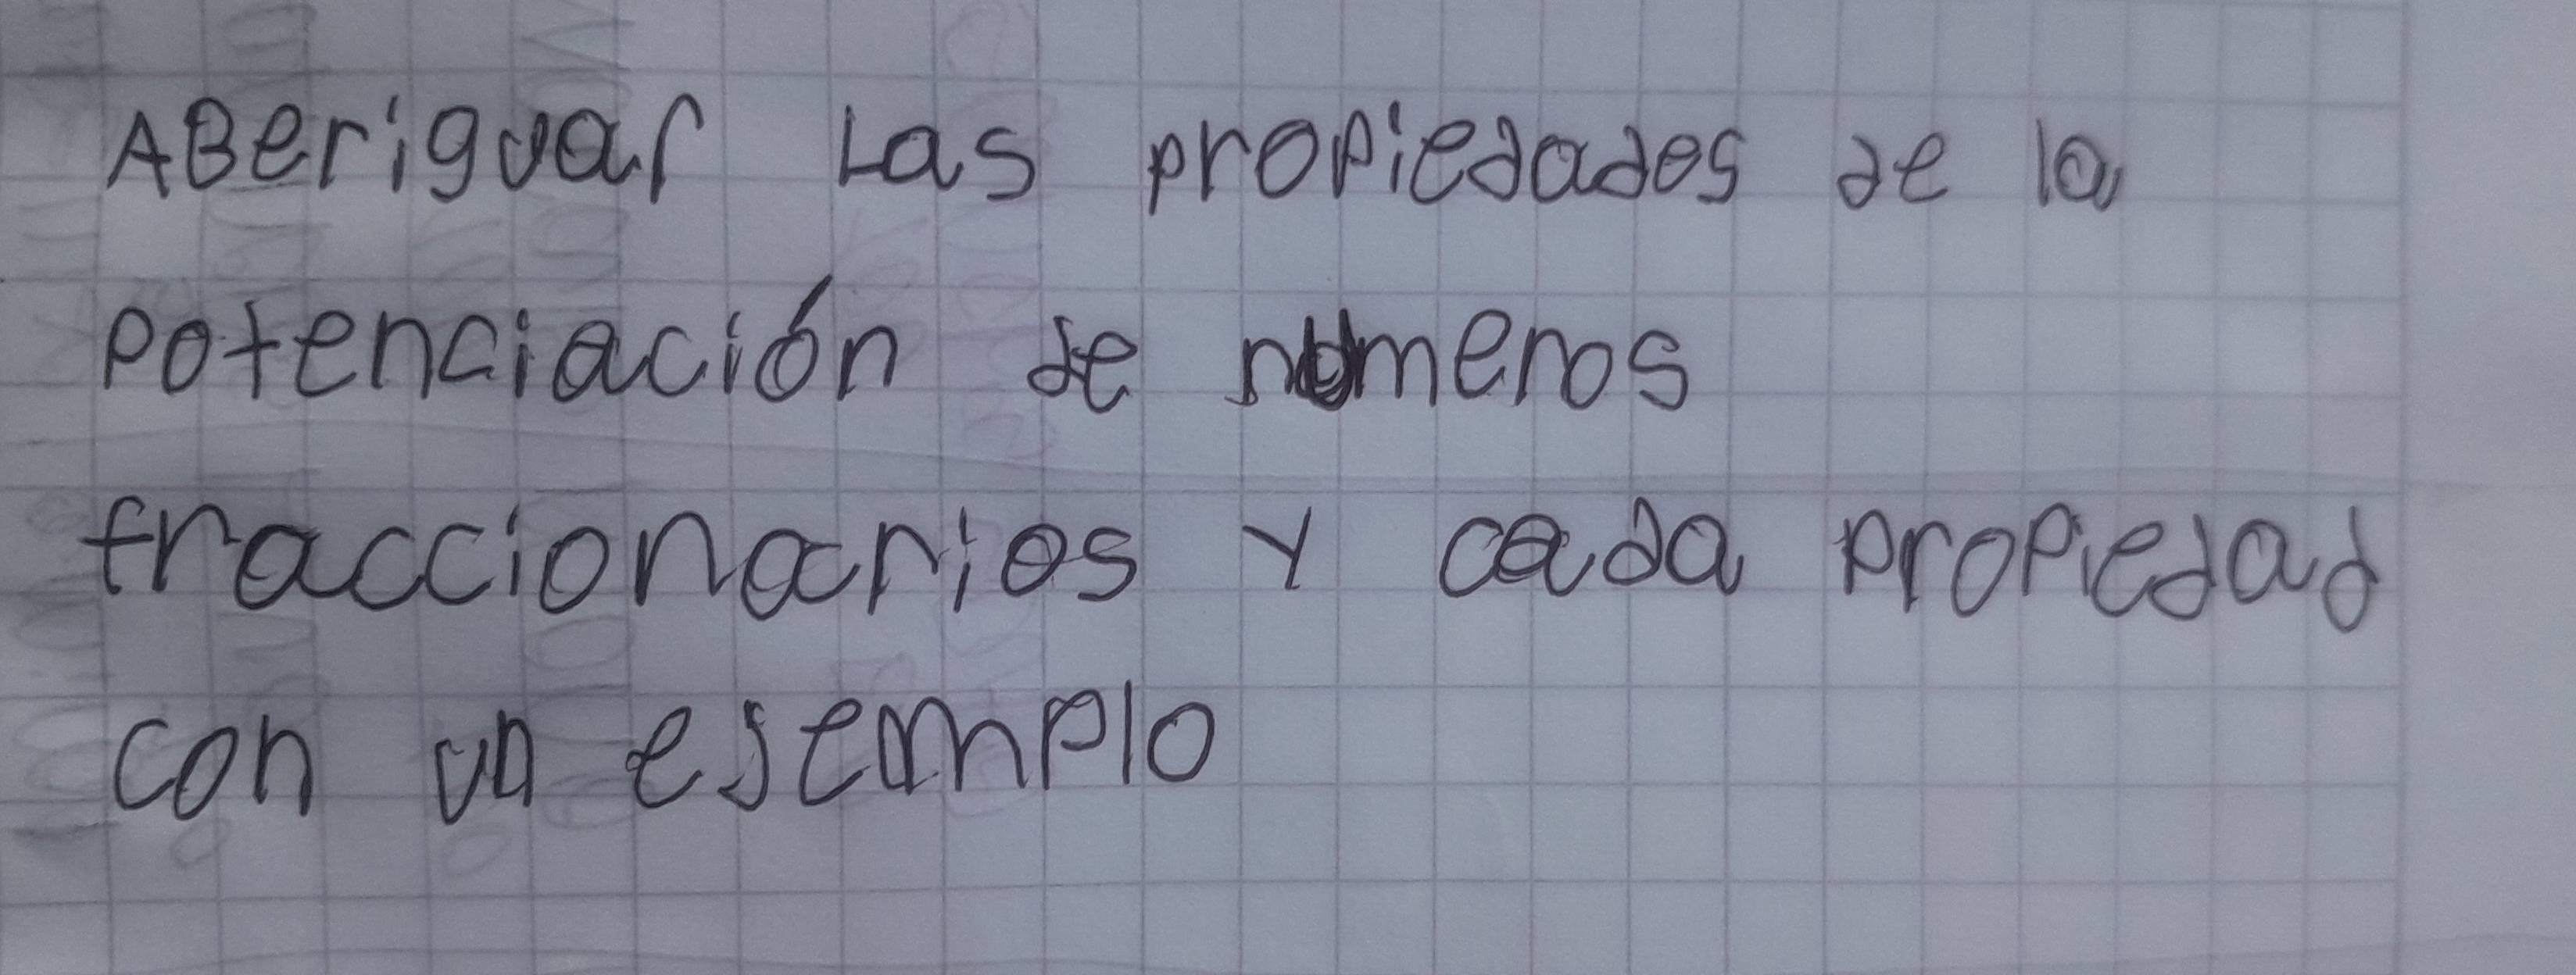 ABeriguar Las propiedades de la
potenciación de numeros
fraccionarios y cada propiedad
con un ejemplo